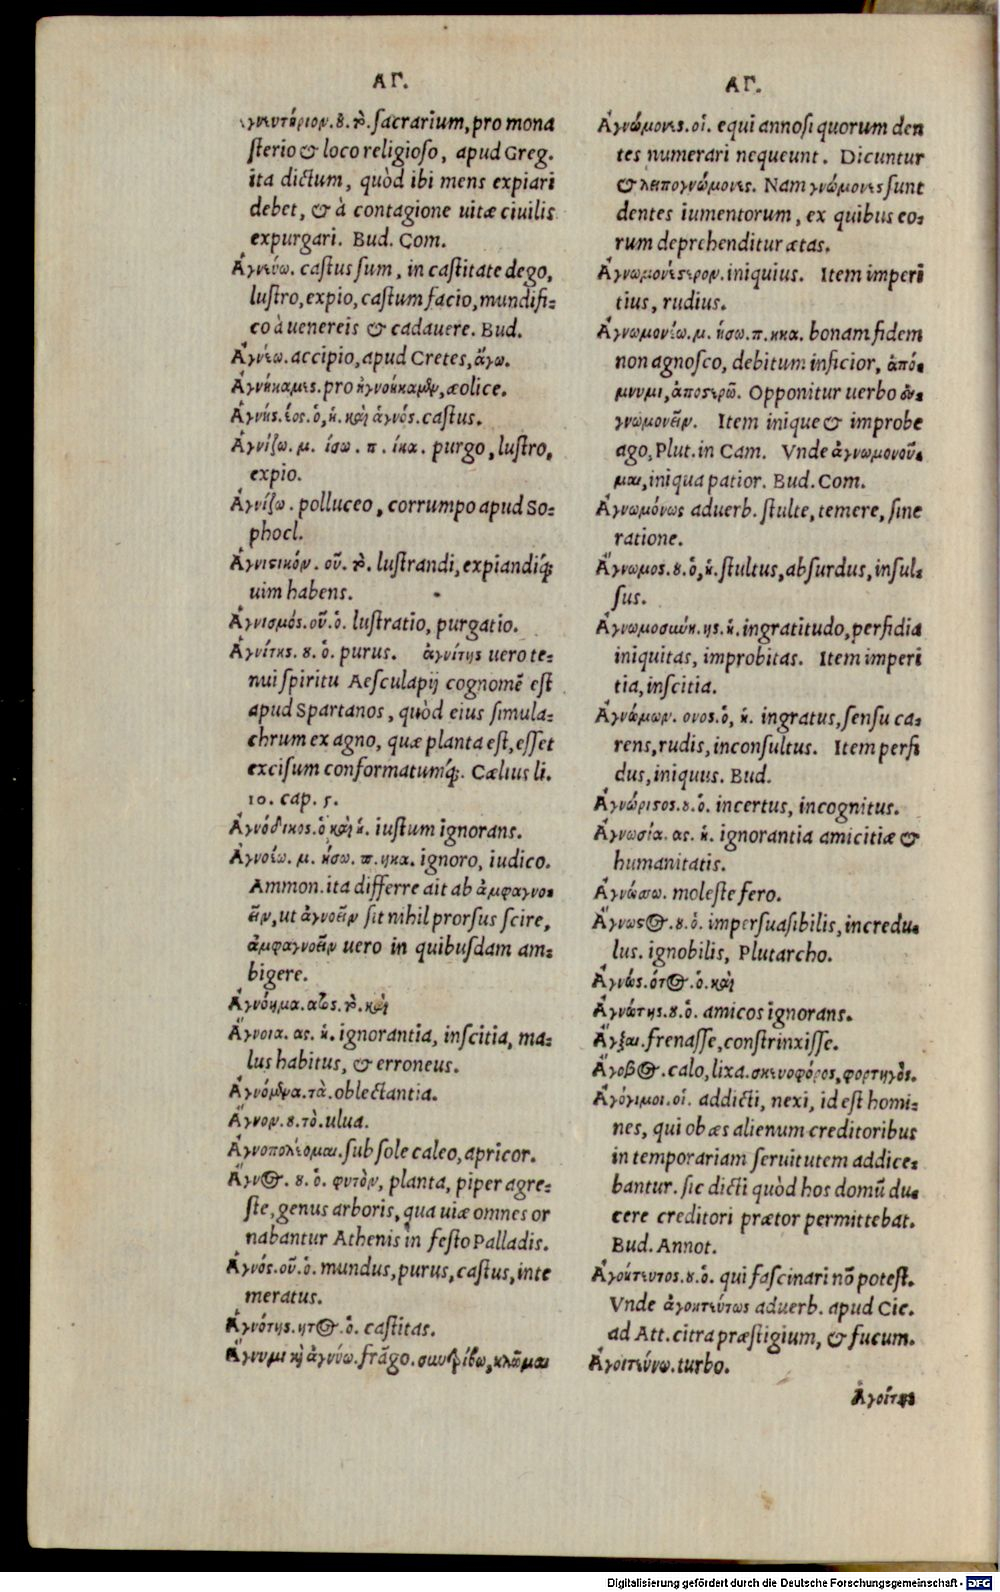 ΑΓ.
Ἁγνευτήριον.ου.τὸ.sacrarium,pro mona
sterio & loco religioso, apud Greg.
ita dictum, quòd ibi mens expiari
debet, & à contagione uitæ ciuilis
expurgari. Bud. Com.
Ἁγνεύω. castus sum, in castitate dego,
lustro, expio, castum facio, mundifi=
co à uenereis & cadauere. Bud.
Ἀγνέω. accipio, apud Cretes, ἄγω.
Ἀγνήκαμες. pro ἠγνοήκαμεν, æolice.
Ἁγνής.έος.ὁ,ἡ. καὶ ἁγνός. castus.
Ἁγνίζω. μ. ίσω. π. ίκα. purgo, lustro,
expio.
Ἁγνίζω. polluceo, corrumpo apud So=
phocl.
Ἁγνιστικόν. οῦ. τὸ. lustrandi, expiandíq;
uim habens.
Ἁγνισμός.οῦ.ὁ. lustratio, purgatio.
Ἁγνίτης. ου. ὁ. purus. ἀγνίτης uero te=
nui spiritu Aesculapij cognomẽ est
apud Spartanos, quòd eius simula=
chrum ex agno, quæ planta est, esset
excisum conformatumq́;. Cælius li.
10. cap. 5.
Ἀγνόδικος.ὁ καὶ ἡ. iustum ignorans.
Ἀγνοέω. μ. ήσω. π. ηκα. ignoro, iudico.
Ammon. ita differre ait ab ἀμφαγνο=
εῖν, ut ἀγνοεῖν sit nihil prorsus scire,
ἀμφαγνοεῖν uero in quibusdam am=
bigere.
Ἀγνόημα.ατος.τὸ.καὶ
Ἄγνοια. ας. ἡ. ignorantia, inscitia, ma=
lus habitus, & erroneus.
τὰ. oblectantia.
Ἄγνον.ου.τὸ.ulua.
Ἁγνοπολέομαι. sub sole caleo, apricor.
Ἄγνος. ου. ὁ. φυτὸν, planta, piper agre=
ste, genus arboris, qua uiæ omnes or
nabantur Athenis in festo Palladis.
Ἁγνός.οῦ.ὁ. mundus, purus, castus, inte
meratus.
Ἁγνότης.ητος.ὁ. castitas.
Ἄγνυμι καὶ ἀγνύω. frãgo. συντρίβω, κλῶμαι
ΑΓ.
Ἀγνώμονες. οἱ. equi annosi quorum den
tes numerari nequeunt. Dicuntur
& λειπογνώμονες. Nam γνώμονες sunt
dentes iumentorum, ex quibus eo=
rum deprehenditur ætas.
Ἀγνωμονέστερον. iniquius. Item imperi
tius, rudius.
Ἀγνωμονέω. μ. ήσω. π. ηκα. bonam fidem
non agnosco, debitum inficior, ἀπό=
μνυμι, ἀποστερῶ. Opponitur uerbo εὐ=
γνωμονεῖν. Item inique & improbe
ago, Plut. in Cam. Vnde ἀγνωμονοῦ=
μαι, iniqua patior. Bud. Com.
Ἀγνωμόνως aduerb. stulte, temere, sine
ratione.
Ἄγνωμος.ου.ὁ,ἡ. stultus, absurdus, insul=
sus.
Ἀγνωμοσύνη.ης.ἡ. ingratitudo, perfidia
iniquitas, improbitas. Item imperi
tia, inscitia.
Ἀγνώμων. ονος.ὁ, ἡ. ingratus, sensu ca=
rens, rudis, inconsultus. Item perfi
dus, iniquus. Bud.
Ἀγνώριστος.ου.ὁ. incertus, incognitus.
Ἀγνωσία. ας. ἡ. ignorantia amicitiæ &
humanitatis.
moleste fero.
Ἄγνωστος.ου.ὁ. impersuasibilis, incredu=
lus. ignobilis, Plutarcho.
Ἀγνώς.ότος.ὁ.καὶ
Ἀγνώτης.ου.ὁ. amicos ignorans.
Ἄγξαι. frenasse, constrinxisse.
Ἄγοβος. calo, lixa. σκευοφόρος, φορτηγός.
Ἀγόγιμοι.οἱ. addicti, nexi, id est homi=
nes, qui ob æs alienum creditoribus
in temporariam seruitutem addice=
bantur. sic dicti quòd hos domũ du=
cere creditori prætor permittebat.
Bud. Annot.
Ἀγοήτευτος.ου.ὁ. qui fascinari nõ potest.
Vnde ἀγοητεύτως aduerb. apud Cic.
ad Att. citra præstigium, & fucum.
Ἀγοιτεύνω. turbo.
Digitalisierung gefördert durch die Deutsche Forschungsgemeinschaft - DFG